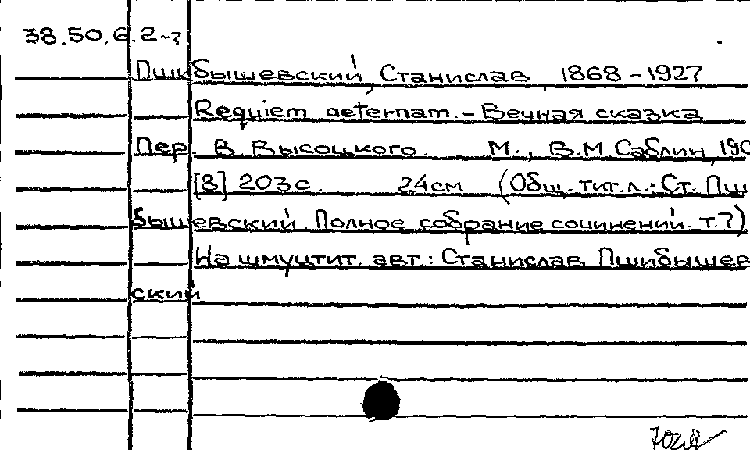 38.50.6.2-7
Пшибышевский, Станислав, 1868-1927
Requiem aeternam. - Вечная сказка
Пер. В. Высоцкого. М., В.М. Саблин, 190
[8] 203с. 24см (Общ. тит. л.: Ст. Пши
бышевский. Полное собрание сочинений. т.7)
На шмуцтит. авт.: Станислав Пшибышев
ский